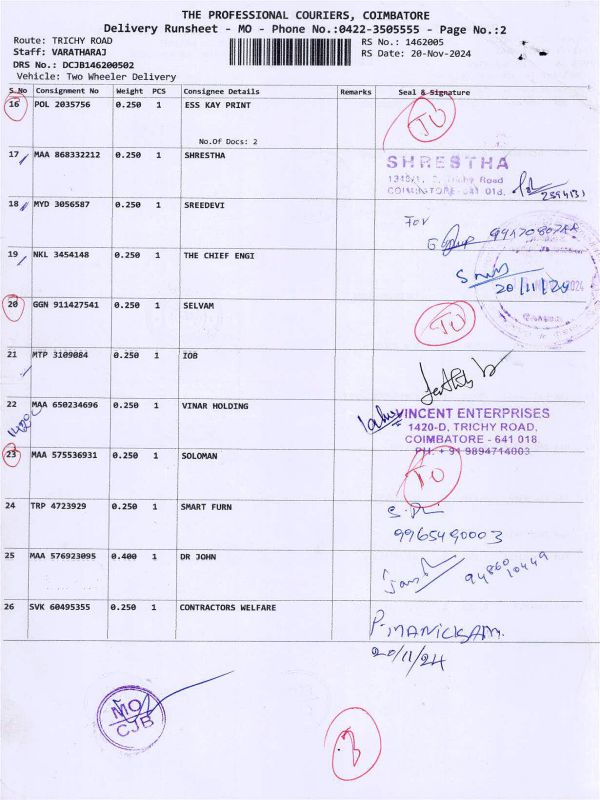 THE PROFESSIONAL COURIERS, COIMBATORE
Delivery Runsheet - MO - Phone No.:0422-3505555 - Page No.:2
Route: TRICHY ROAD
RS No.: 1462005
Staff: VARATHARAJ
RS Date: 20-Nov-2024
DRS No.: DCJB146200502
Vehicle: Two Wheeler Delivery
S.No Consignment No Weight PCS Consignee Details Remarks Seal & Signature
16 POL 2035756 0.250 1 ESS KAY PRINT
TO
No.Of Docs: 2
17 MAA 868332212 0.250 1 SHRESTHA
SHRESTHA
Trichy Road
COIMBATORE - 641 018.
18 MYD 3056587 0.250 1 SREEDEVI
For
19 NKL 3454148 0.250 1 THE CHIEF ENGI
20/11/24
20 GGN 911427541 0.250 1 SELVAM
TO
21 MTP 3109084 0.250 1 IOB
22 MAA 650234696 0.250 1 VINAR HOLDING
VINCENT ENTERPRISES
1420-D, TRICHY ROAD,
COIMBATORE - 641 018.
PH: + 91 9894714003
23 MAA 575536931 0.250 1 SOLOMAN
TO
24 TRP 4723929 0.250 1 SMART FURN
9965490003
25 MAA 576923095 0.400 1 DR JOHN
94860
10449
26 SVK 60495355 0.250 1 CONTRACTORS WELFARE
P. MANICKAM.
20/11/24
MO
CJB
3